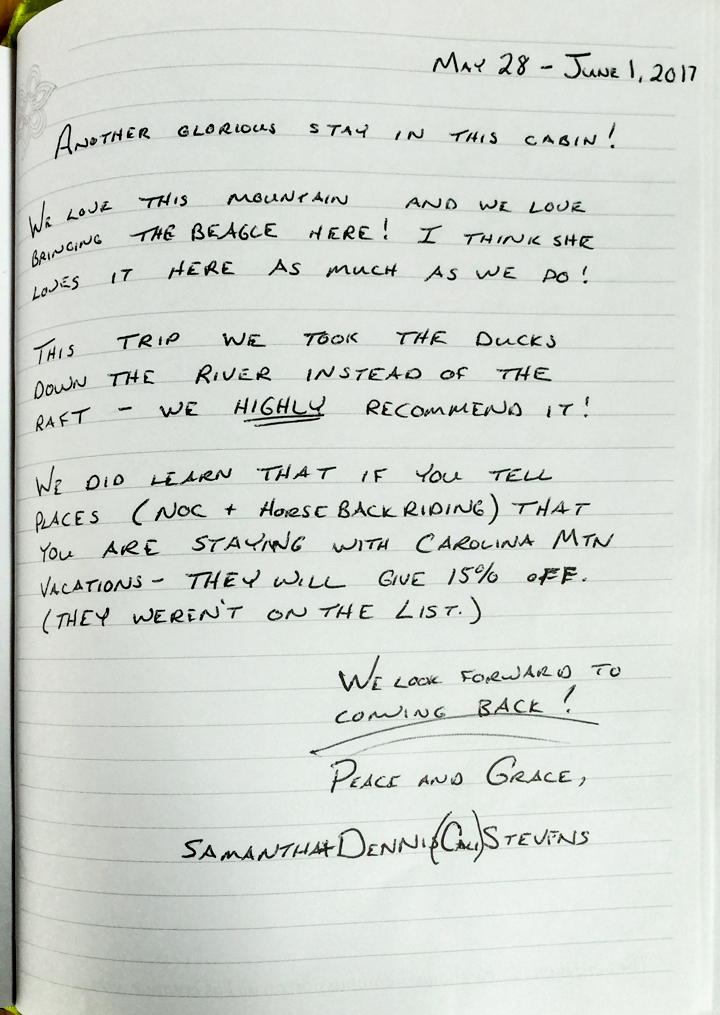 MAY 28 - JUNE 1, 2017
ANOTHER GLORIOUS STAY IN THIS CABIN!
WE LOVE THIS MOUNTAIN AND WE LOVE
BRINGING THE BEAGLE HERE! I THINK SHE
LOVES IT HERE AS MUCH AS WE DO!
THIS TRIP WE TOOK THE DUCKS
DOWN THE RIVER INSTEAD OF THE
RAFT - WE HIGHLY RECOMMEND IT!
WE DID LEARN THAT IF YOU TELL
PLACES (NOC + HORSEBACK RIDING) THAT
YOU ARE STAYING WITH CAROLINA MTN
VACATIONS - THEY WILL GIVE 15% OFF.
(THEY WEREN'T ON THE LIST.)
WE LOOK FORWARD TO
COMING BACK!
PEACE AND GRACE,
SAMANTHA + DENNIS (CALI) STEVENS